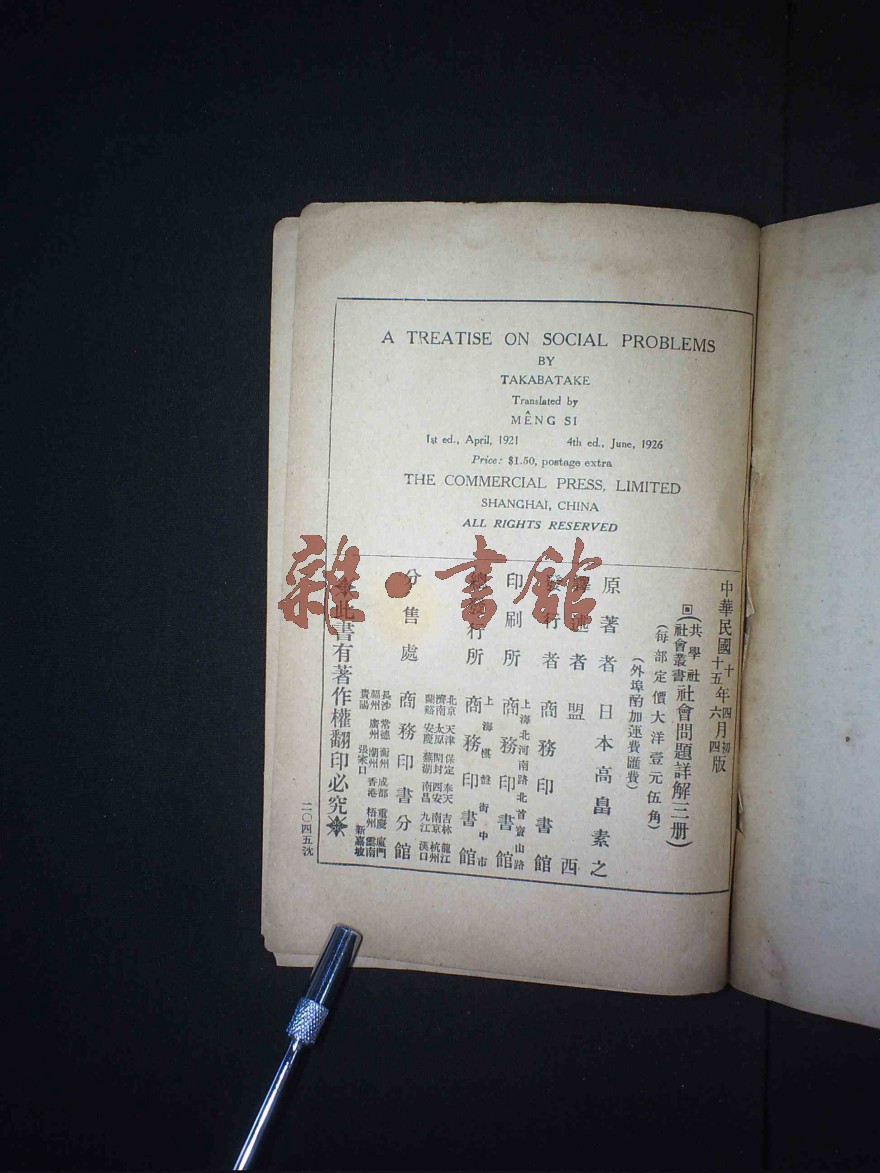 A TREATISE ON SOCIAL PROBLEMS
BY
TAKABATAKE
Translated by
MÊNG SI
1st ed., April, 1921 4th ed., June, 1926
Price: $1.50, postage extra
THE COMMERCIAL PRESS, LIMITED
SHANGHAI, CHINA
ALL RIGHTS RESERVED
中華民國十年四月初版
十五年六月四版
(共學社社會叢書 社會問題詳解三册)
(每部定價大洋壹元伍角)
(外埠酌加運費匯費)
原著者 日本高畠素之
譯述者 盟西
發行者 商務印書館
印刷所 上海北河南路北首寶山路 商務印書館
總發行所 上海棋盤街中市 商務印書館
分售處 北京 天津 保定 奉天 吉林 龍江
濟南 太原 開封 西安 南京 杭州
蘭谿 安慶 蕪湖 南昌 九江 漢口
商務印書分館
長沙 常德 衡州 成都 重慶 廈門
福州 廣州 潮州 香港 梧州 雲南
貴陽 張家口 新嘉坡
此書有著作權翻印必究
二〇四五沈
雜·書館